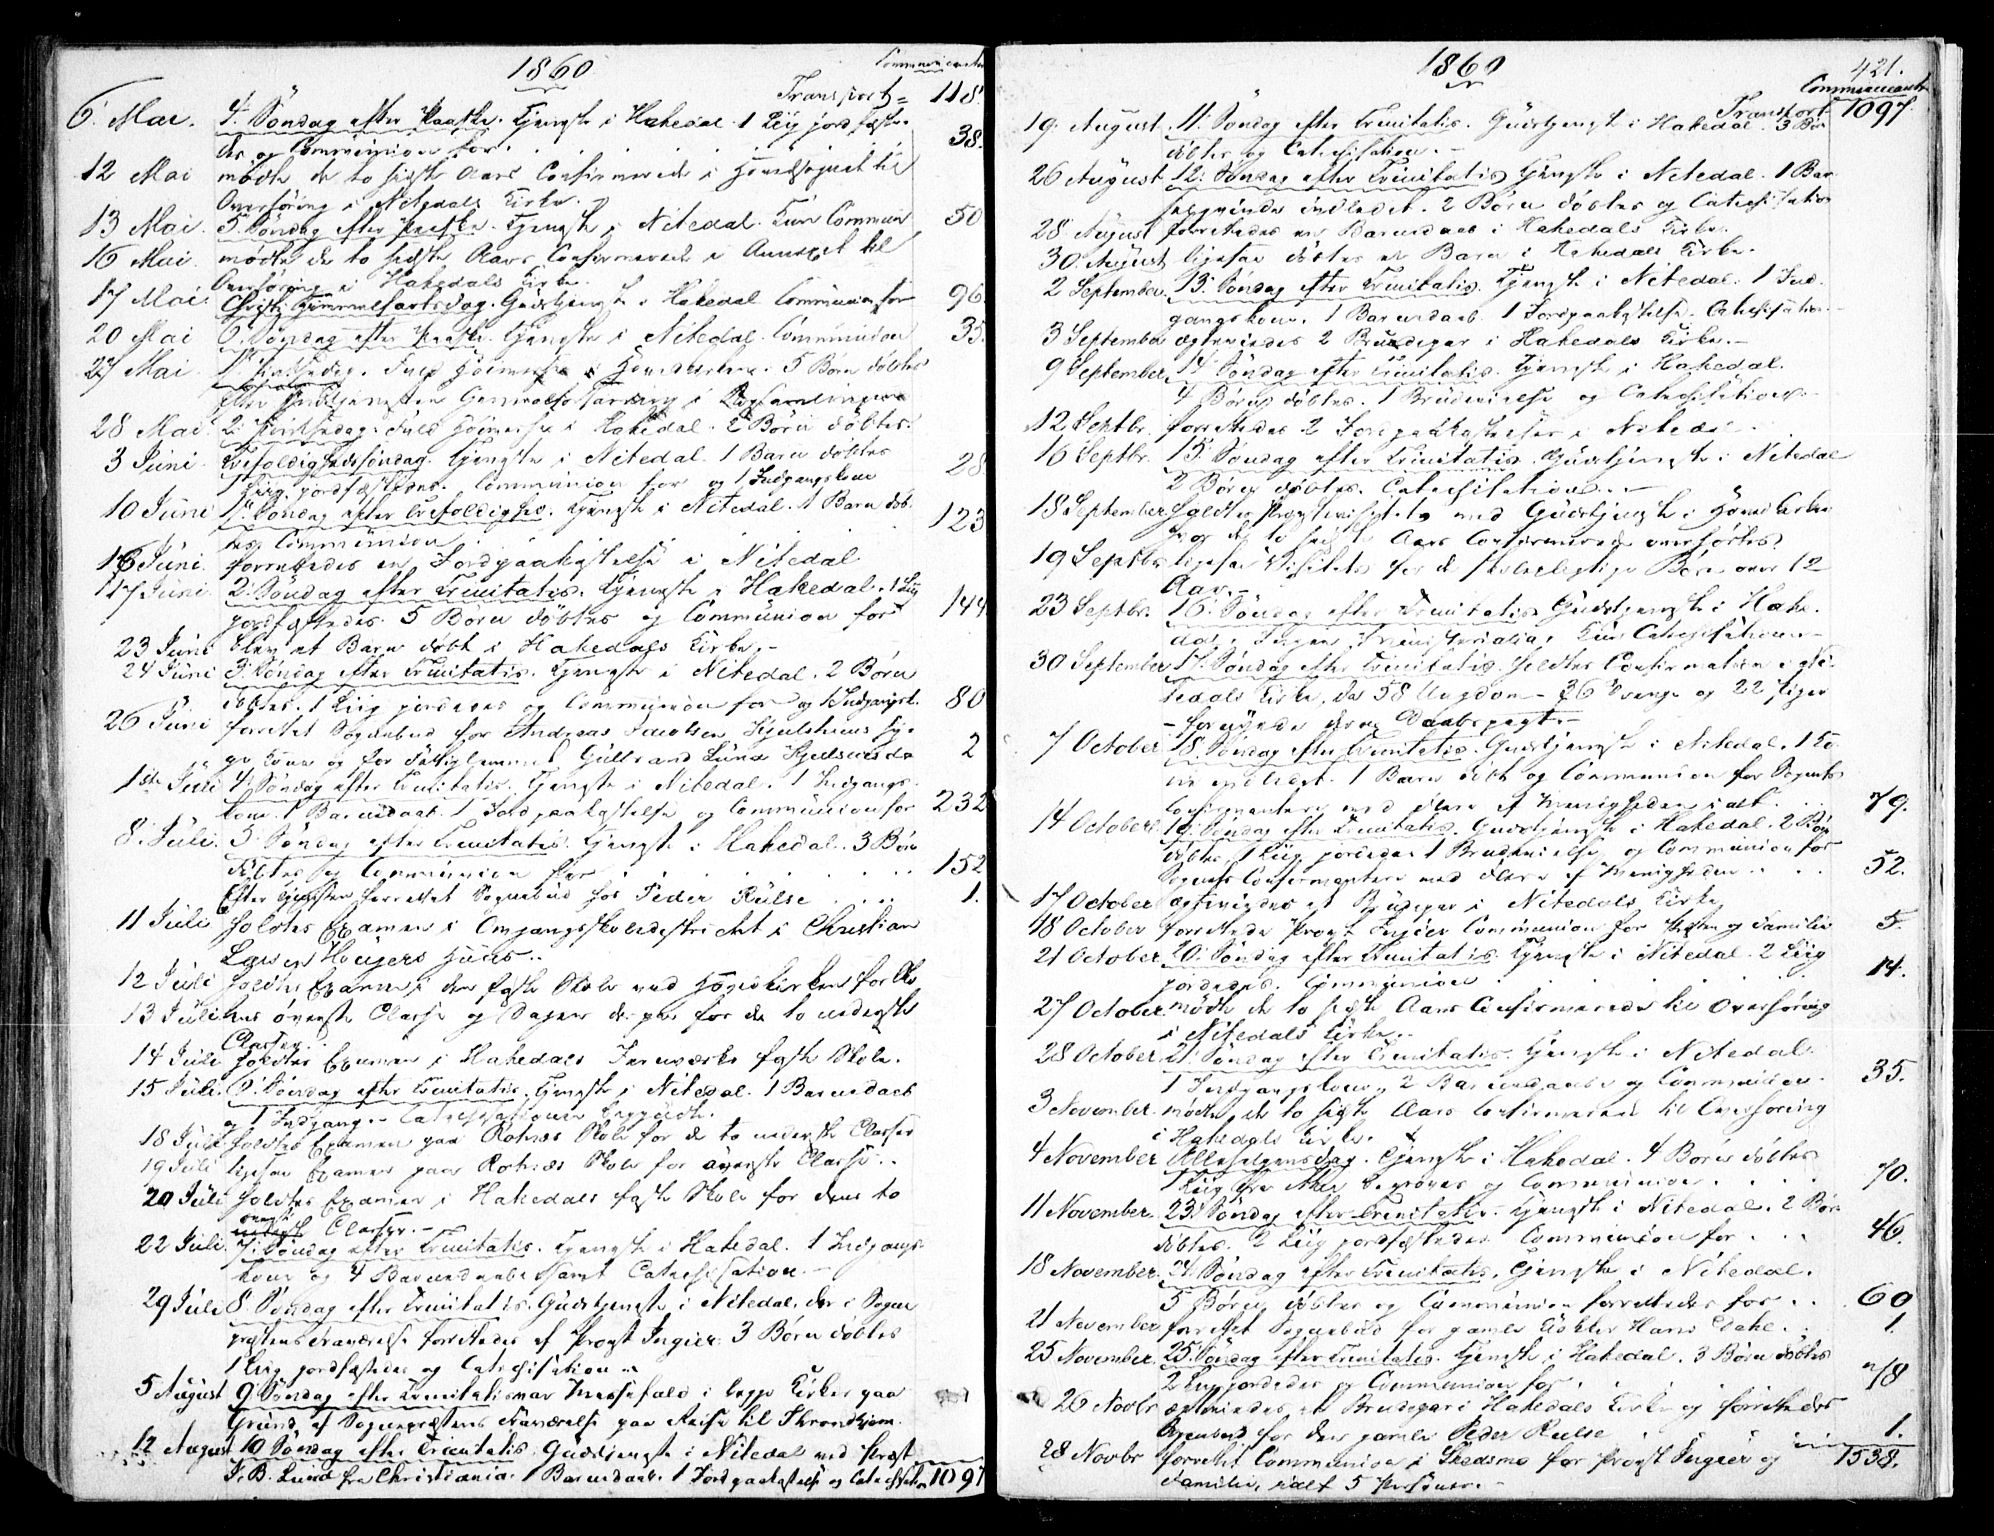 1860
Communicanter
Transport = 118.
6' Mai. 4. Söndag efter Paaske. Tjeneste i Hakedal. 1 Liig jordfæste-
des og Communion for 38.
12 Mai mødte de to sidste Aars Confirmerede i Hovedsognet til
Overhöring i Nitedals Kirke.
13 Mai. 5. Söndag efter Paaske. Tjeneste i Nitedal. Kun Commun 50
16 Mai. mødte de to sidste Aars Confirmerede i Annexet til
Overhöring i Hakedals Kirke.
17 Mai. Christi Himmelfartsdag. Gudstjeneste i Hakedal. Communion for 96.
20 Mai 6. Söndag efter Paaske. Tjeneste i Nitedal. Communion 35.
27 Mai. 1. Pintsedag. Fuld Höimesse i Hovedkirken. 5 Börn döbtes
efter Gudstjenesten
28 Mai. 2. Pintsedag. Fuld Höimesse i Hakedal. 2 Börn döbtes.
3 Juni. Trefoldighedssöndag. Tjeneste i Nitedal. 1 Barn döbtes
1 Liig jordfæstedes. Communion for og 1 Indgangskone 28
10 Juni 1. Söndag efter Trefoldighed. Tjeneste i Nitedal. 1 Barn döb-
tes. Communion 123
16 Juni. forrettedes en Jordpaakastelse i Nitedal
17 Juni 2. Söndag efter Trinitatis. Tjeneste i Hakedal. 1 Liig
jordfæstedes. 5 Börn döbtes og Communion for 144
23 Juni blev et Barn döbt i Hakedals Kirke.
24 Juni 3. Söndag efter Trinitatis. Tjeneste i Nitedal. 2 Börn
döbtes. 1 Liig jordedes og Communion for og 1 Indgangsk. 80
26 Juni forrettet Sognebud for Andreas Jacobsen
Kone og for Fattiglem Gulbrand Lund 2
1ste Juli 4. Söndag efter Trinitatis. Tjeneste i Nitedal. 1 Indgangs-
kone. 1 Barnedaab. 1 Jordpaakastelse og Communion for 232
8. Juli. 5. Söndag efter Trinitatis. Tjeneste i Hakedal. 3 Börn
döbtes og Communion for 152
Efter Tjenesten forrettet Sognebud hos Peder Rulse 1.
11 Juli holdtes Examen i Omgangsskoledistrictet i Christian
Larsen Houger Huus.
12 Juli holdtes Examen i den faste Skole ved Hovedkirken for Sko
13 Juli lens överste Classe og Dagen derpaa for de to nederste
Classer.
14 Juli holdtes Examen i Hakedals Jernværks faste Skole.
15 Juli. 6. Söndag efter Trinitatis. Tjeneste i Nitedal. 1 Barnedaab
og 1 Indgang. Catechisationen begyndte.
18 Juli holdtes Examen paa Rotnæs Skole for de to nederste Classer
19 Juli ligesaa Examen paa Rotnæs Skole for överste Classe.
20 Juli holdtes Examen i Hakedals faste Skole for dens to
överste
Classer.
22 Juli. 7. Söndag efter Trinitatis. Tjeneste i Hakedal. 1 Indgangs-
kone og 4 Barnedaabe samt Catechisation.
29 Juli 8. Söndag efter Trinitatis. Gudstjeneste i Nitedal, der i Sogne
præstens Fraværelse forrettedes af Provst Ingier. 3 Börn döbtes
1 Liig jordfæstedes og Catechisation
5 August 9. Söndag efter Trinitatis var Messefald i begge Kirker paa
Grund af Sognepræstens Fraværelse paa Reise til Throndhjem.
12 August 10 Söndag efter Trinitatis. Gudstjeneste i Nitedal ved Præst
J. B. Lund fra Christiania. 1 Barnedaab. 1 Jordpaakastelse og Catechisation 1097
1860
421.
Communicanter
Transport 1097.
19. August 11. Söndag efter Trinitatis. Gudstjeneste i Hakedal. 3 Börn
döbtes og Catechisation.
26 August 12. Söndag efter Trinitatis. Tjeneste i Nitedal. 1 Bar
selqvinde indledet. 2 Börn döbtes og Catechisation
28 August forrettedes en Barnedaab i Hakedals Kirke.
30. August ligesaa döbtes et Barn i Hakedals Kirke.
2 September. 13. Söndag efter Trinitatis. Tjeneste i Nitedal. 1 Ind-
gangskone. 1 Barnedaab. 1 Jordpaakastelse. Catechisation.
3 September ægteviedes 2 Brudepar i Hakedals Kirke.
9 September. 14. Söndag efter Trinitatis. Tjeneste i Hakedal.
4 Börn döbtes. 1 Brudevielse og Catechisation.
12 Septbr. forrettedes 2 Jordpaakastelser i Nitedal.
16 Septbr. 15. Söndag efter Trinitatis. Gudstjeneste i Nitedal
2 Börn döbtes. Catechisation.
18 September holdtes Provstevisitats med Gudstjeneste i Hovedkirken
hvor de to sidste Aars Confirmerede overhörtes.
19 Septbr. ligesaa Visitats for de skolepligtige Börn over 12
Aar.
23 Septbr. 16. Söndag efter Trinitatis Gudstjeneste i Hake-
dal. Ingen Ministerialia, kun Catechisation
30 September 17. Söndag efter Trinitatis. holdtes Confirmation i Ni-
tedals Kirke, da 58 Ungdom - 36 Drenge og 22 Piger
- fornyede deres Daabspagt.
7 October 18. Söndag efter Trinitatis. Gudstjeneste i Nitedal. 1 Ko-
ne indledet. 1 Barn döbt og Communion for Sognets
Confirmanter med flere af Menigheden ialt 79.
14 October. 19. Söndag efter Trinitatis. Gudstjeneste i Hakedal. 2 Börn
döbtes, 1 Liig jordedes 1 Brudevielse og Communion for
Sognets Confirmanter med flere af Menigheden 52.
17 October ægteviedes et Brudepar i Nitedals Kirke
18 October forrettede Provst Ingier Communion for Præsten og Familie 5.
21 October 20. Söndag efter Trinitatis. Tjeneste i Nitedal. 2 Liig
jordedes. Communion 14.
27 October mödte de to sidste Aars Confirmerede til Overhöring
i Nitedals Kirke.
28 October 21. Söndag efter Trinitatis. Tjeneste i Nitedal.
1 Indgangskone, 2 Barnedaabe og Communion 35.
3 November mödte de to sidste Aars Confirmerede til Overhöring
i Hakedals Kirke.
4 November Allehelgensdag. Tjeneste i Hakedal. 4 Börn döbtes
1 Liig fra Aker begraves og Communion 70.
11 November. 23. Söndag efter Trinitatis. Tjeneste i Nitedal. 2 Börn
döbtes. 2 Liig jordfæstedes. Communion for 46.
18 November. 24. Söndag efter Trinitatis. Tjeneste i Nitedal.
5 Börn döbtes og Communion forrettedes for 60
21 November forrettet Sognebud for gamle Hans Dahl 1.
25 November. 25. Söndag efter Trinitatis. Tjeneste i Hakedal. 3 Börn döbtes
2 Liig jordedes og Communion for 78
26 Novbr ægteviedes et Brudepar i Hakedals Kirke og forrettedes
Sognebud for den gamle Peder Rulse 1.
28 Novbr forrettet Communion i Skedsmo for Provst Ingier og 1538.
Familie, ialt 5 Personer.